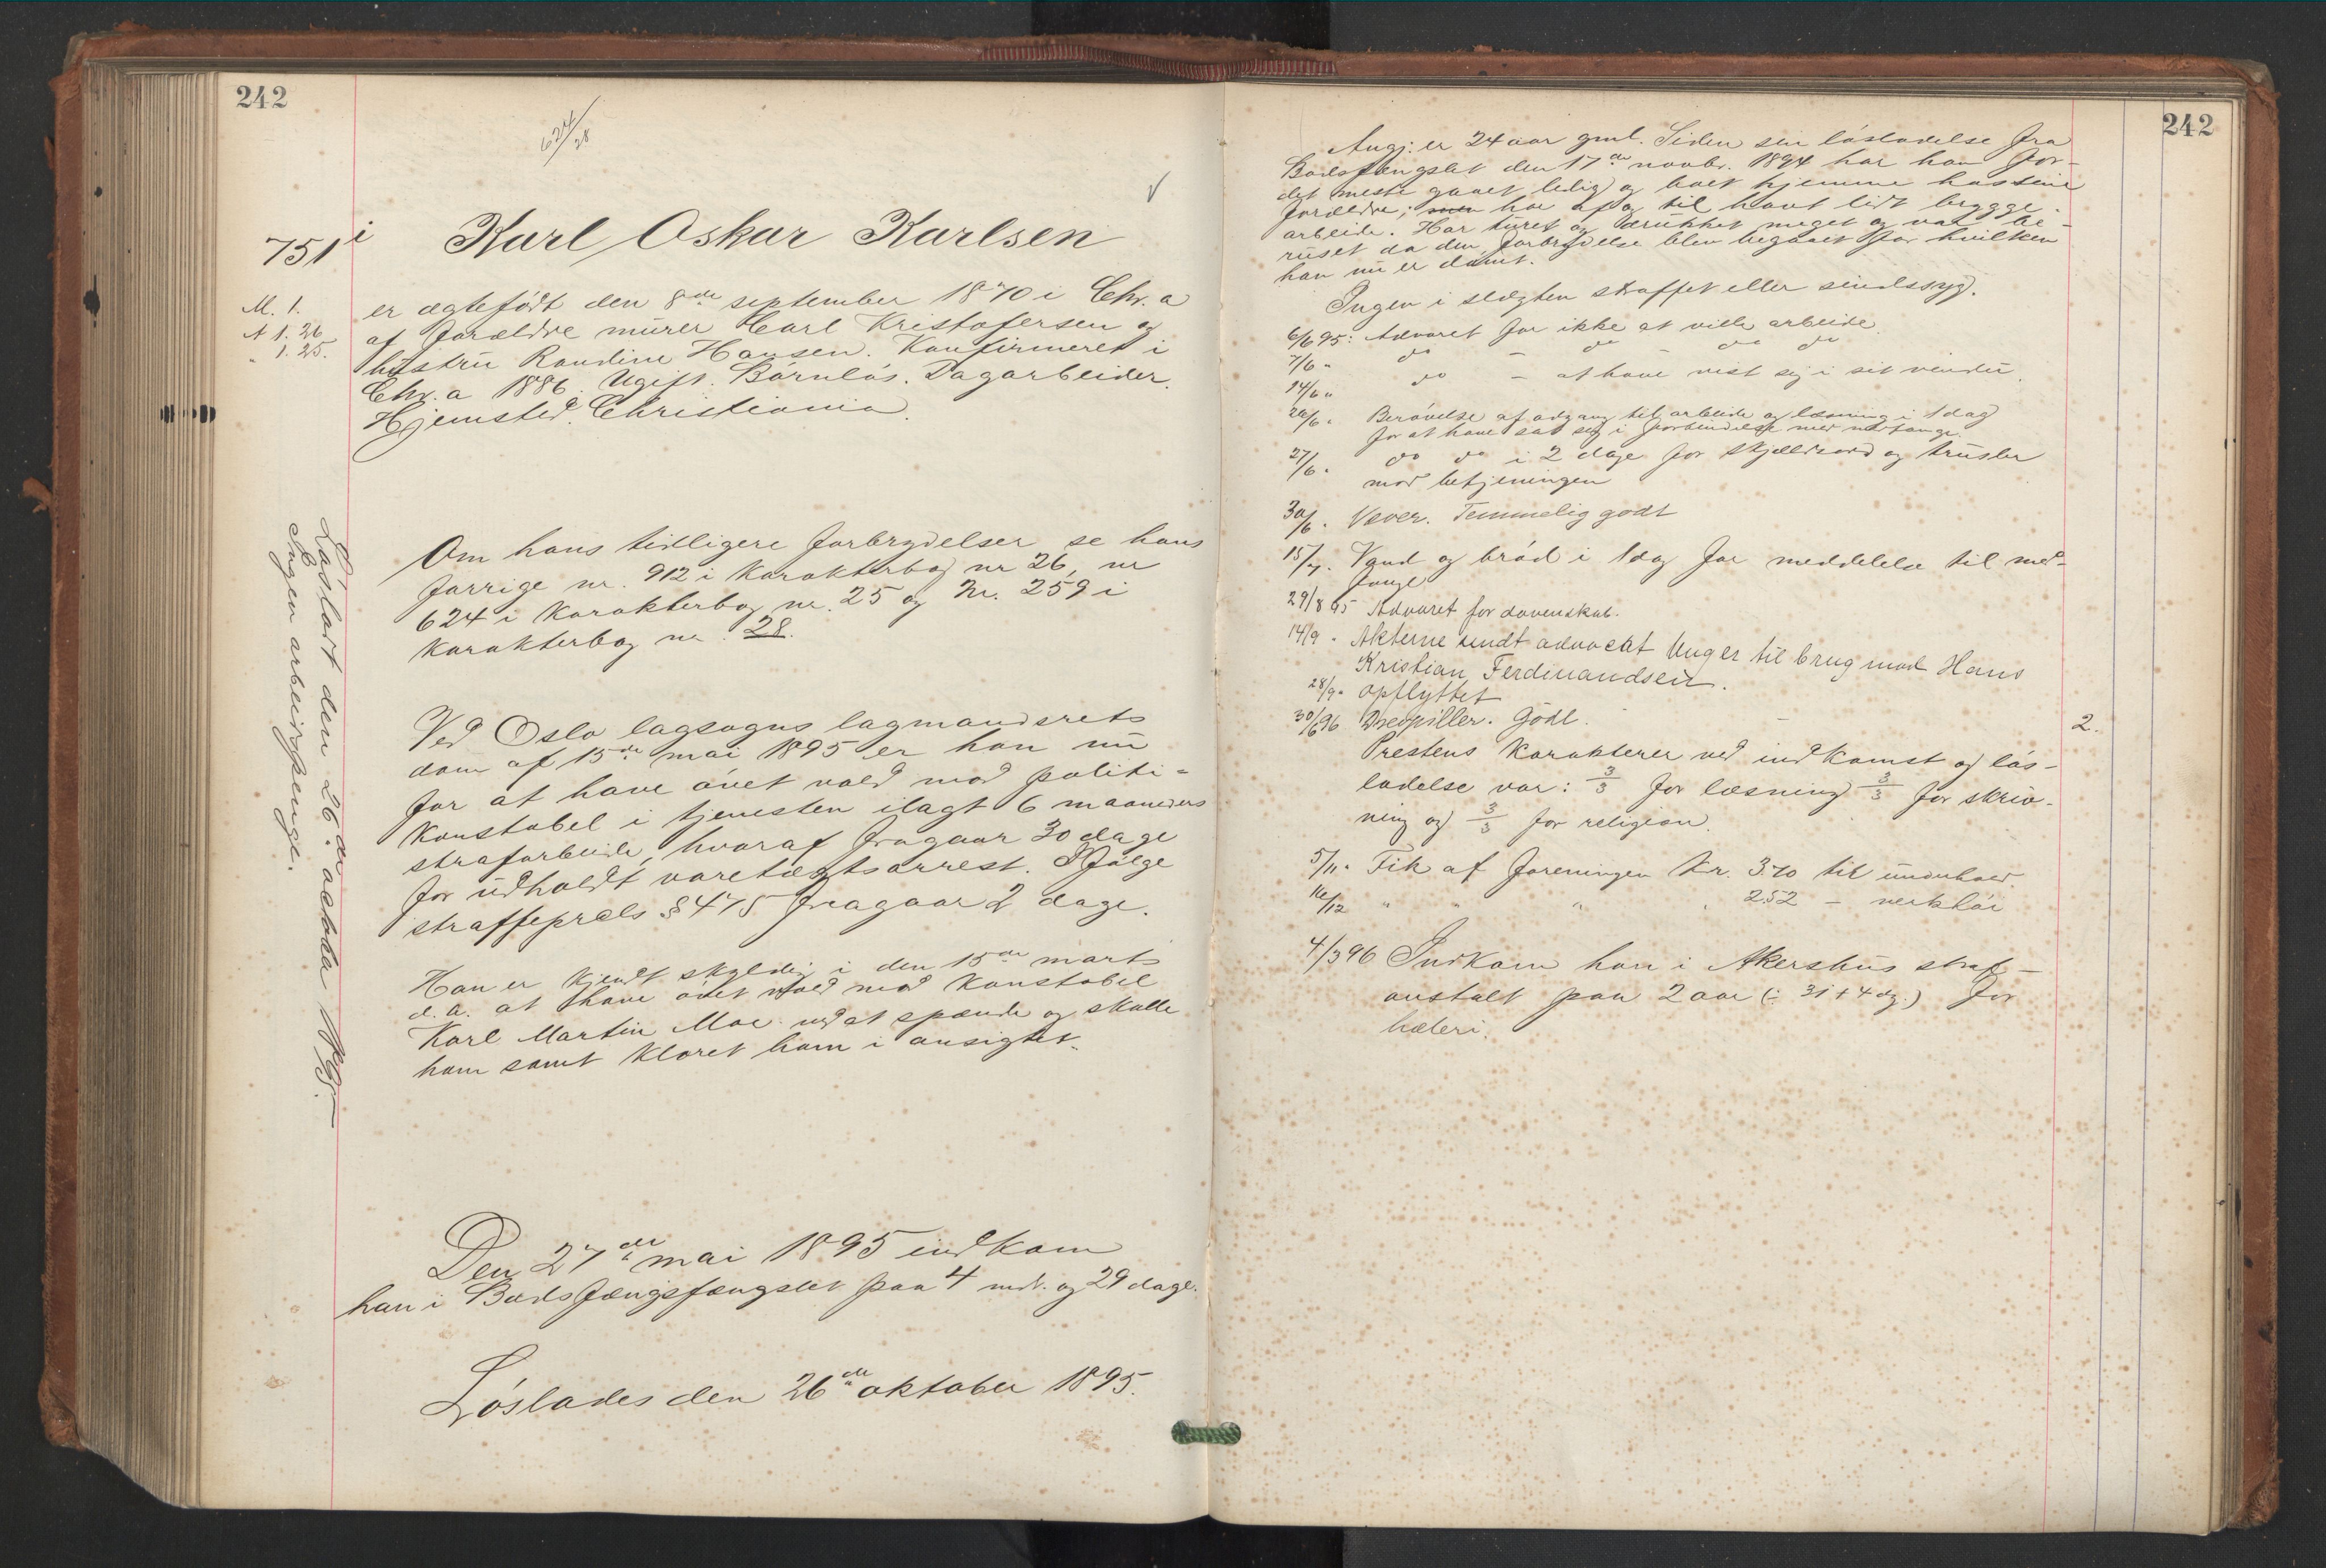 242
624/28
751 i
Karl Oskar Karlsen
M. 1.
N 1. 26
" 1. 25.
er ægtefödt den 8de september 1870 i Chr. a
af forældre mürer Carl Kristofersen og
hüstrü Randine Hansen. Konfirmeret i
Chr. a 1886. Ugift. Barnlös. Dagarbeider.
Hjemsted. Christiania.
Om hans tidligere forbrydelser se hans
forrige nr. 912 i Karakterbog nr 26, nr
624 i Karakterbog nr. 25 og Nr. 259 i
Karakterbog nr. 28.
Lösladt den 26de october 1895.
Ingen arbeidspenge.
Ved Oslo lagsogns lagmandsrets
dom af 15de mai 1895 er han nü
for at have övet vold mod politi=
Konstabel i tjenesten ilagt 6 maaneders
strafarbeide, hvoraf fragaar 30 dage
for üdholdt varetægtsarrest. Ifölge
straffeprocls § 475 fragaar 2 dage.
Han er Kjendt skyldig i den 15de marts
d. a. at have övet vold mod Konstabel
Karl Martin Moe ved at spænde og skalle
ham samt kloret ham i ansigtet.
Den 27de mai 1895 indkom
han i Bodsfængsfængslet paa 4 mdr. og 29 dage.
Löslades den 26de oktober 1895.
242
Angj: er 24 aar gml. Siden sin löslatelse fra
Bodsfængslet den 17de novbr. 1894 har han for-
det meste gaaet ledig og boet hjemme hos sine
forældre; men har af og til havt lidt brygge-
arbeide. Har türet og drükket meget og var be-
rüset da den forbrydelse blev begaaet for hvilken
han nü er dömt.
Ingen i slægten straffet eller sindssyg.
6/6 95: Advaret for ikke at ville arbeide.
7/6 " do do do do
14/6 " do – at have vist sig i sit vindü.
26/6 " Berövelse af adgang til arbeide og læsning i 1 dag
for at have sat sig i forbindelse med medfange
27/6 " do do i 2 dage for skjældsord og trüsler
mod betjeningen
30/6 " Væver. Temmelig godt
15/7 " Vand og bröd i 1 dag for meddelelse til med-
fange
29/8 95 Advaret for dovenskab.
14/9 " Akterne sendt advocat Unger til brug mod Hans
Kristian Ferdinandsen.
28/9 " opflyttet
30/6 96 Dreopiller. Godt. – 2.
Prestens Karakterer ved indkomst og lös-
ladelse var: 3/3 for læsning 3/3 for skriv-
ning og 3/3 for religion.
5/11 " Fik af foreningen Kr. 3.70 til ünderhold.
16/12 " " " " 2.52 – verktöi
4/3 96 Indkom han i Akershüs straf-
anstalt paa 2 aar (: 3i + 4 dg.) for
hæleri.